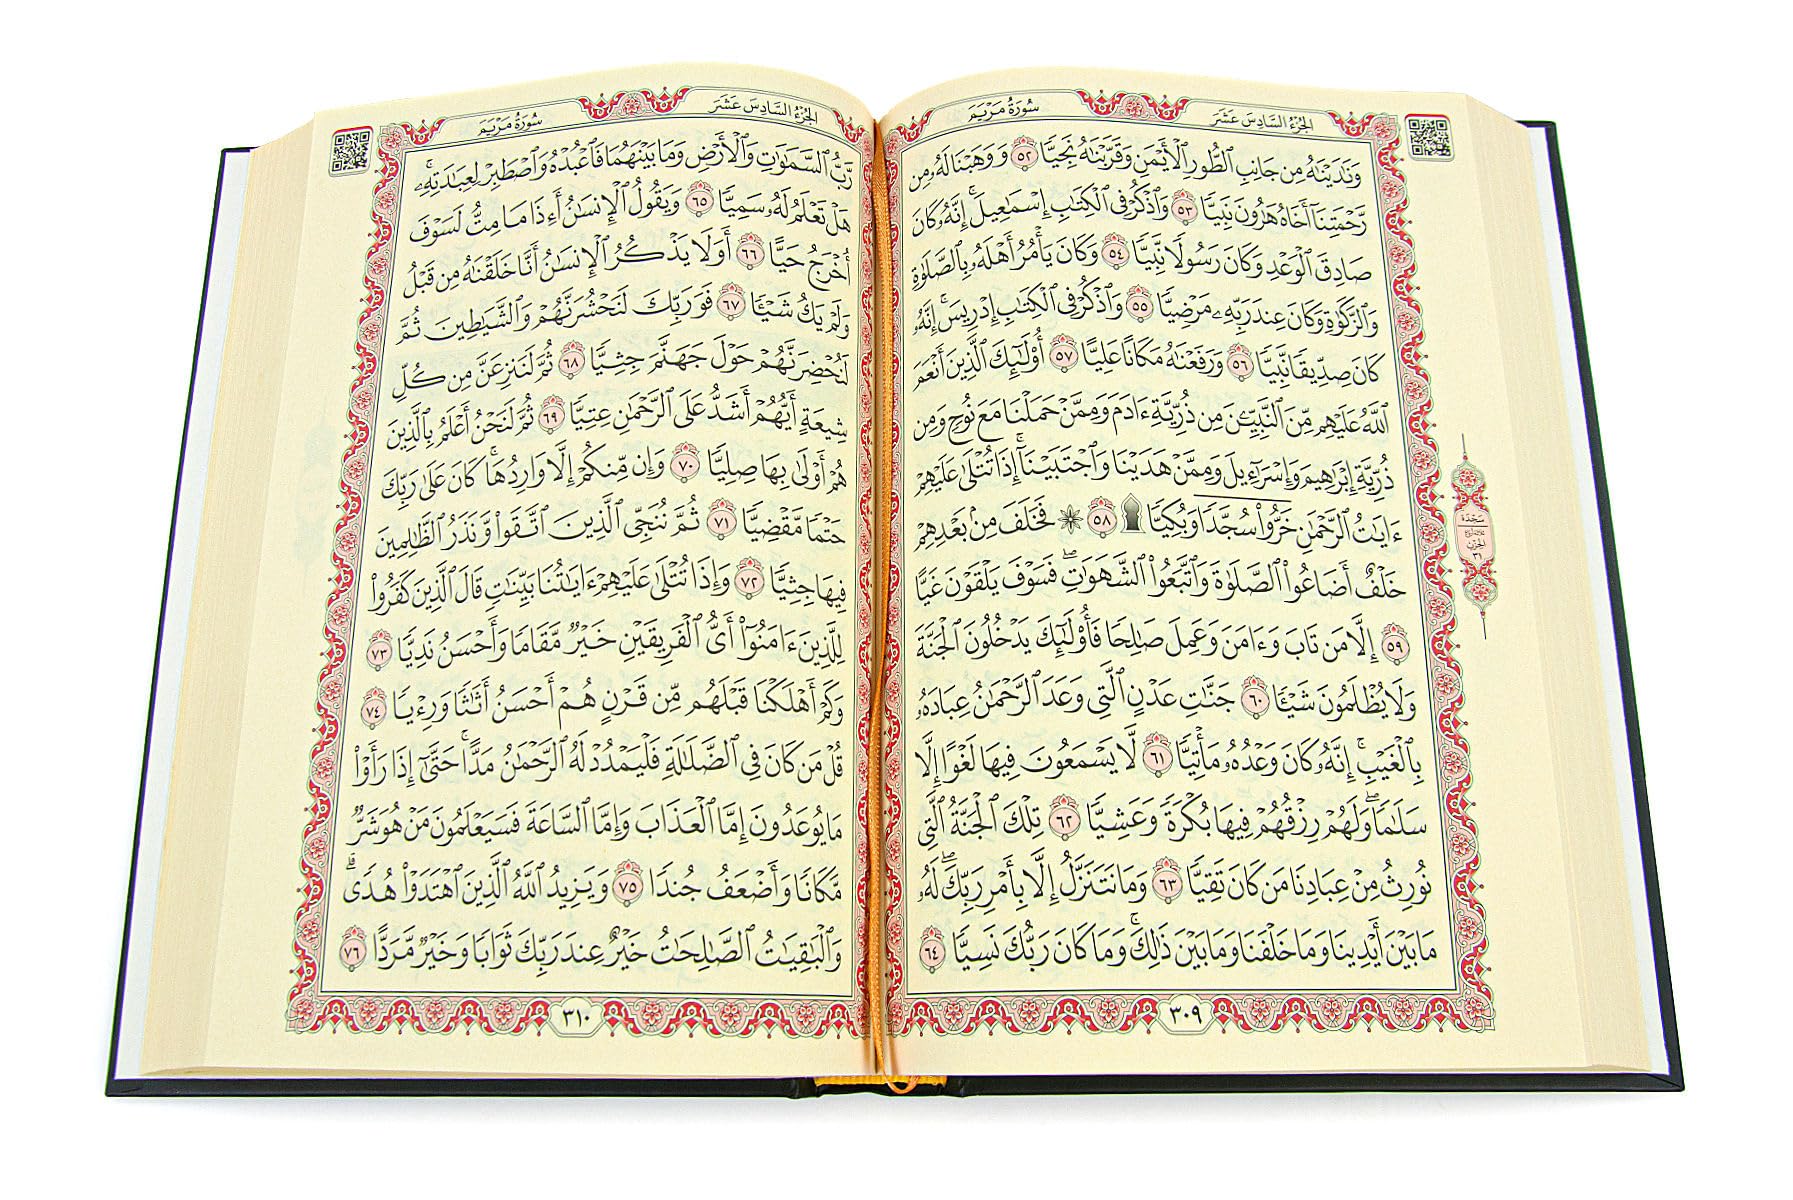 الجزء السادس عشر
سورة مريم
وَنَٰدَيْنَٰهُ مِن جَانِبِ ٱلطُّورِ ٱلْأَيْمَنِ وَقَرَّبْنَٰهُ نَجِيًّا ٥٢ وَوَهَبْنَا لَهُۥ مِن
رَّحْمَتِنَآ أَخَاهُ هَٰرُونَ نَبِيًّا ٥٣ وَٱذْكُرْ فِى ٱلْكِتَٰبِ إِسْمَٰعِيلَ ۚ إِنَّهُۥ كَانَ
صَادِقَ ٱلْوَعْدِ وَكَانَ رَسُولًا نَّبِيًّا ٥٤ وَكَانَ يَأْمُرُ أَهْلَهُۥ بِٱلصَّلَوٰةِ
وَٱلزَّكَوٰةِ وَكَانَ عِندَ رَبِّهِۦ مَرْضِيًّا ٥٥ وَٱذْكُرْ فِى ٱلْكِتَٰبِ إِدْرِيسَ ۚ إِنَّهُۥ
كَانَ صِدِّيقًا نَّبِيًّا ٥٦ وَرَفَعْنَٰهُ مَكَانًا عَلِيًّا ٥٧ أُو۟لَٰٓئِكَ ٱلَّذِينَ أَنْعَمَ
ٱللَّهُ عَلَيْهِم مِّنَ ٱلنَّبِيِّـۧنَ مِن ذُرِّيَّةِ ءَادَمَ وَمِمَّنْ حَمَلْنَا مَعَ نُوحٍ وَمِن
ذُرِّيَّةِ إِبْرَٰهِيمَ وَإِسْرَٰٓءِيلَ وَمِمَّنْ هَدَيْنَا وَٱجْتَبَيْنَآ ۚ إِذَا تُتْلَىٰ عَلَيْهِمْ
ءَايَٰتُ ٱلرَّحْمَٰنِ خَرُّوا۟ سُجَّدًا وَبُكِيًّا ۩ ٥٨ ۞ فَخَلَفَ مِنۢ بَعْدِهِمْ
خَلْفٌ أَضَاعُوا۟ ٱلصَّلَوٰةَ وَٱتَّبَعُوا۟ ٱلشَّهَوَٰتِ ۖ فَسَوْفَ يَلْقَوْنَ غَيًّا
٥٩ إِلَّا مَن تَابَ وَءَامَنَ وَعَمِلَ صَٰلِحًا فَأُو۟لَٰٓئِكَ يَدْخُلُونَ ٱلْجَنَّةَ
وَلَا يُظْلَمُونَ شَيْـًٔا ٦٠ جَنَّٰتِ عَدْنٍ ٱلَّتِى وَعَدَ ٱلرَّحْمَٰنُ عِبَادَهُۥ
بِٱلْغَيْبِ ۚ إِنَّهُۥ كَانَ وَعْدُهُۥ مَأْتِيًّا ٦١ لَّا يَسْمَعُونَ فِيهَا لَغْوًا إِلَّا
سَلَٰمًا ۖ وَلَهُمْ رِزْقُهُمْ فِيهَا بُكْرَةً وَعَشِيًّا ٦٢ تِلْكَ ٱلْجَنَّةُ ٱلَّتِى
نُورِثُ مِنْ عِبَادِنَا مَن كَانَ تَقِيًّا ٦٣ وَمَا نَتَنَزَّلُ إِلَّا بِأَمْرِ رَبِّكَ ۖ لَهُۥ
مَا بَيْنَ أَيْدِينَا وَمَا خَلْفَنَا وَمَا بَيْنَ ذَٰلِكَ ۚ وَمَا كَانَ رَبُّكَ نَسِيًّا ٦٤
٣٠٩
سَجْدَة
الحزب
٣١
الجزء السادس عشر
سورة مريم
رَّبُّ ٱلسَّمَٰوَٰتِ وَٱلْأَرْضِ وَمَا بَيْنَهُمَا فَٱعْبُدْهُ وَٱصْطَبِرْ لِعِبَٰدَتِهِۦ ۚ
هَلْ تَعْلَمُ لَهُۥ سَمِيًّا ٦٥ وَيَقُولُ ٱلْإِنسَٰنُ أَءِذَا مَا مِتُّ لَسَوْفَ
أُخْرَجُ حَيًّا ٦٦ أَوَلَا يَذْكُرُ ٱلْإِنسَٰنُ أَنَّا خَلَقْنَٰهُ مِن قَبْلُ
وَلَمْ يَكُ شَيْـًٔا ٦٧ فَوَرَبِّكَ لَنَحْشُرَنَّهُمْ وَٱلشَّيَٰطِينَ ثُمَّ
لَنُحْضِرَنَّهُمْ حَوْلَ جَهَنَّمَ جِثِيًّا ٦٨ ثُمَّ لَنَنزِعَنَّ مِن كُلِّ
شِيعَةٍ أَيُّهُمْ أَشَدُّ عَلَى ٱلرَّحْمَٰنِ عِتِيًّا ٦٩ ثُمَّ لَنَحْنُ أَعْلَمُ بِٱلَّذِينَ
هُمْ أَوْلَىٰ بِهَا صِلِيًّا ٧٠ وَإِن مِّنكُمْ إِلَّا وَارِدُهَا ۚ كَانَ عَلَىٰ رَبِّكَ
حَتْمًا مَّقْضِيًّا ٧١ ثُمَّ نُنَجِّى ٱلَّذِينَ ٱتَّقَوا۟ وَّنَذَرُ ٱلظَّٰلِمِينَ
فِيهَا جِثِيًّا ٧٢ وَإِذَا تُتْلَىٰ عَلَيْهِمْ ءَايَٰتُنَا بَيِّنَٰتٍ قَالَ ٱلَّذِينَ كَفَرُوا۟
لِلَّذِينَ ءَامَنُوٓا۟ أَىُّ ٱلْفَرِيقَيْنِ خَيْرٌ مَّقَامًا وَأَحْسَنُ نَدِيًّا ٧٣
وَكَمْ أَهْلَكْنَا قَبْلَهُم مِّن قَرْنٍ هُمْ أَحْسَنُ أَثَٰثًا وَرِءْيًا ٧٤
قُلْ مَن كَانَ فِى ٱلضَّلَٰلَةِ فَلْيَمْدُدْ لَهُ ٱلرَّحْمَٰنُ مَدًّا ۚ حَتَّىٰٓ إِذَا رَأَوْا۟
مَا يُوعَدُونَ إِمَّا ٱلْعَذَابَ وَإِمَّا ٱلسَّاعَةَ فَسَيَعْلَمُونَ مَنْ هُوَ شَرٌّ
مَّكَانًا وَأَضْعَفُ جُندًا ٧٥ وَيَزِيدُ ٱللَّهُ ٱلَّذِينَ ٱهْتَدَوْا۟ هُدًى ۗ
وَٱلْبَٰقِيَٰتُ ٱلصَّٰلِحَٰتُ خَيْرٌ عِندَ رَبِّكَ ثَوَابًا وَخَيْرٌ مَّرَدًّا ٧٦
٣١٠